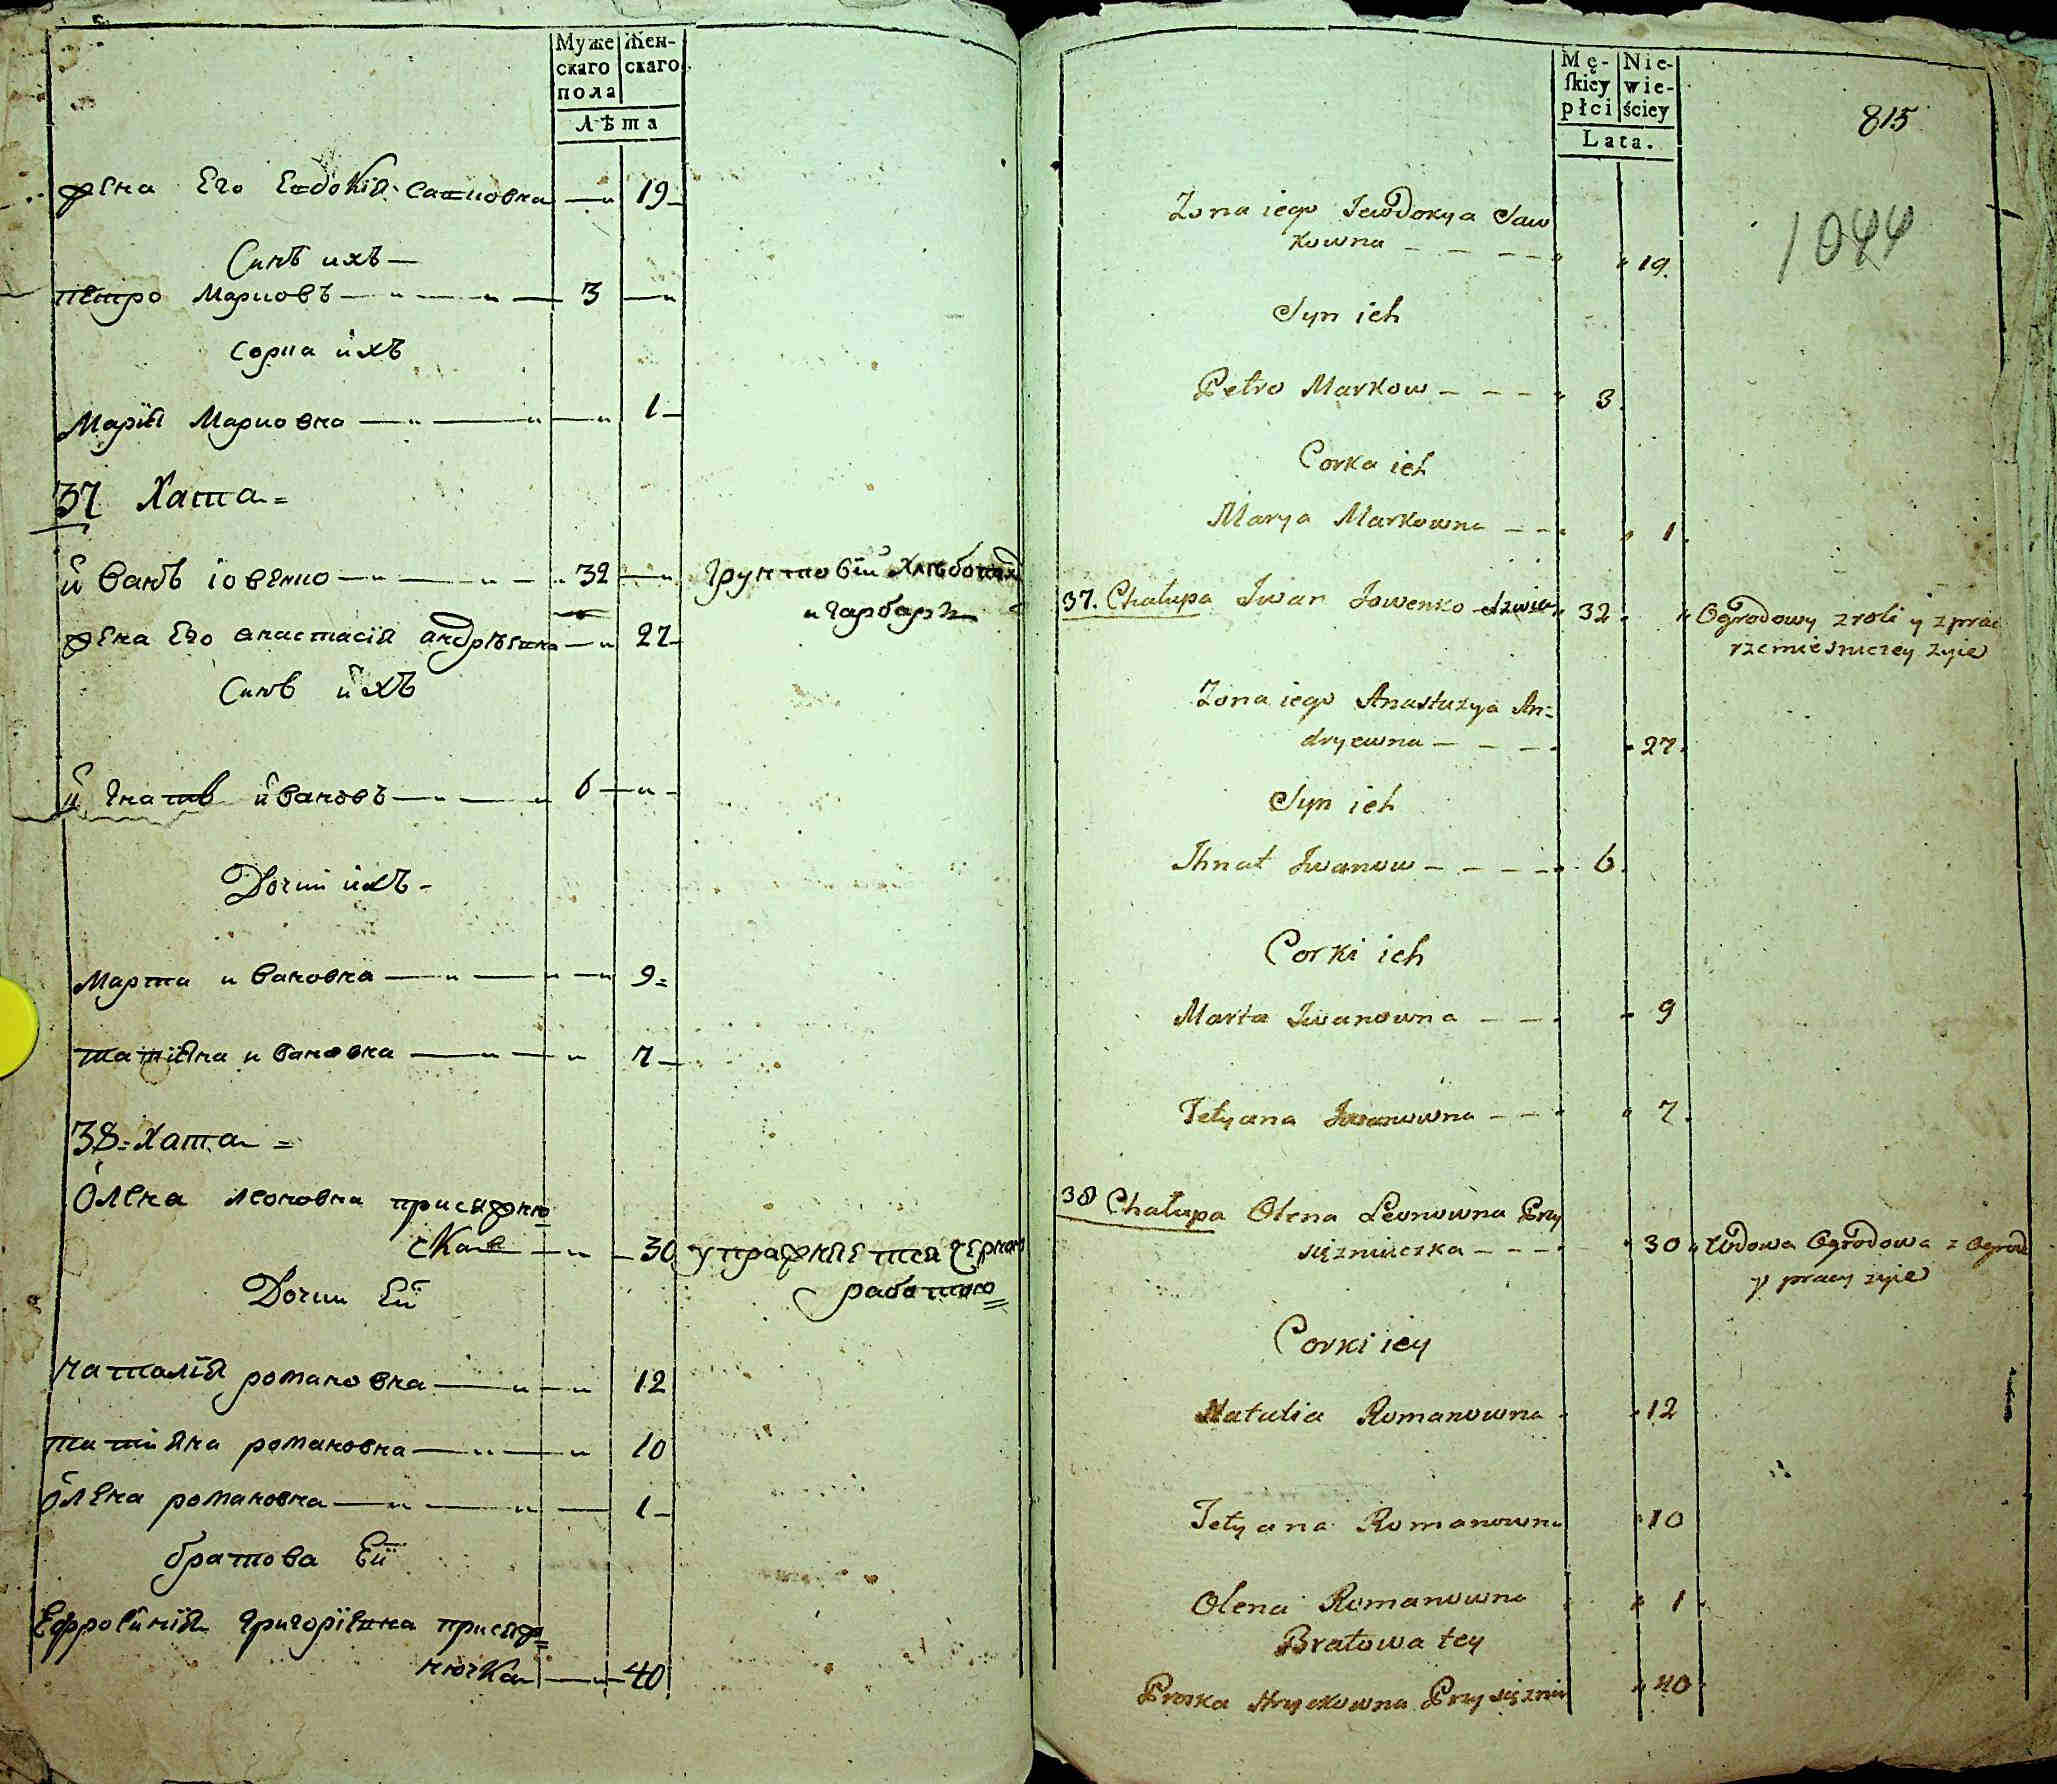 Муже
скаго
пола
Жен-
скаго
Лѣта
жена Его Евдокїя Савковна — 19
Синъ ихъ —
петро Марковъ — 3 —
Дорка ихъ
Марїя Марковна — 1
37 Хата =
иванъ іовенко — 32 — грунтовїй Хлѣбопаш
и гарбаръ
жена Его анастасїя андрѣевна — 27
Синъ ихъ
игнатъ ивановъ — 6 —
Дочки ихъ -
Марта ивановна — 9 =
татїяна ивановна — 7 —
38 = Хата =
Олена леоновна присяжню
ска — 30 упражняется Черною
работою
Дочки Ей
наталїя романовна — 12
татїяна романовна — 10
Олена романовна — 1 —
братова Ей
Ефросинїя григорїевна присяж=
нючка — 40
Mę-
ſkiey
płci
Nie-
wie-
ściey
Lata.
815
1044
Zona iego Jewdokya Saw
kowna - - - - 19.
Syn ich
Petro Markow - - - 3.
Corka ich
Marya Markowna - - 1.
37. Chałupa Iwan Jowenko 32. Ogrodowy z roli y z prac
rzemiesniczey zyie
Zona iego Anastazya An=
dryewna - - - 27.
Syn ich
Ihnat Iwanow - - - - 6.
Corki ich
Marta Iwanowna - - 9
Tetyana Iwanowna - - 7.
38 Chałupa Olena Leonowna Przy
siężniuczka - - - 30 Wdowa Ogrodowa z ogrod
y pracy zyie
Corki iey
Natalia Romanowna 12
Tetyana Romanowna 10
Olena Romanowna 1
Bratowa tey
Proska Hryckowna Przysiężniu 40